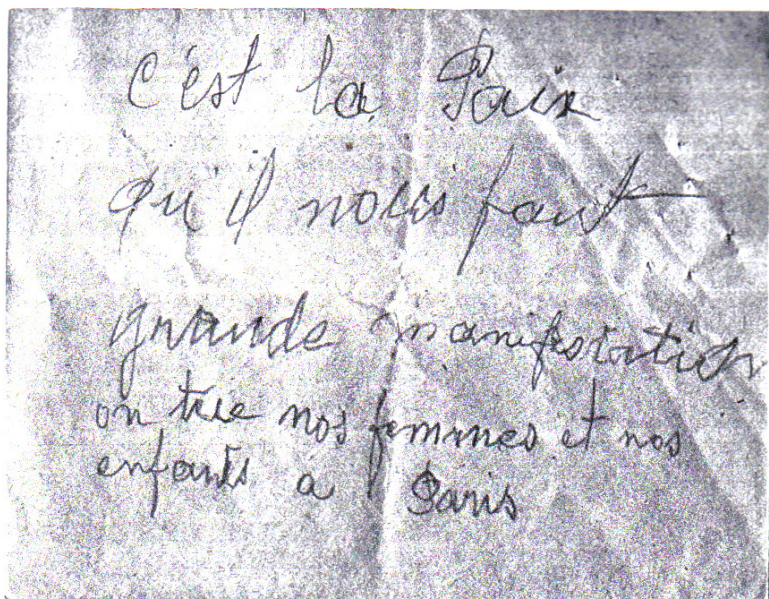 C'est la Paix
qu'il nous faut
grande manifestation
on tue nos femmes et nos
enfants à Paris